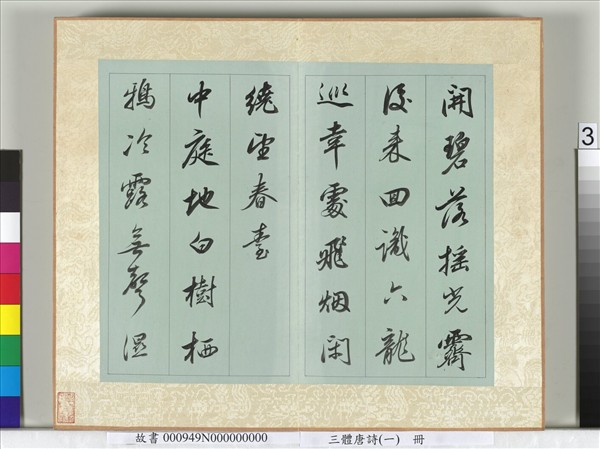 開碧落搖光霽
後来回識六龍
巡幸處飛烟閑
繞望春臺
中庭地白樹栖
鴉冷露無聲濕
3
故書 000949N000000000
三體唐詩(一) 冊